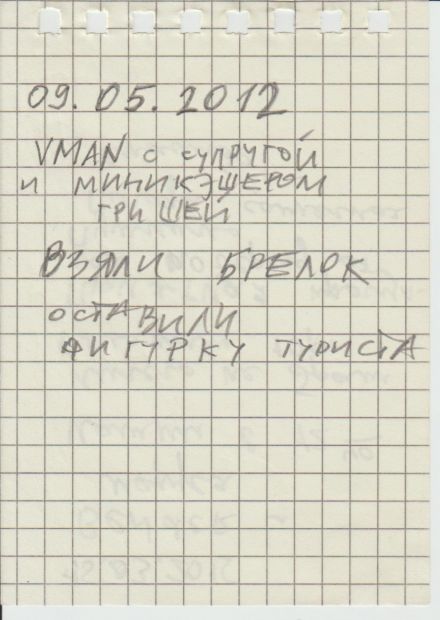 09.05.2012
VMAN С СУПРУГОЙ
И МИНИКЭШЕРОМ
ГРИШЕЙ
ВЗЯЛИ БРЕЛОК
ОСТАВИЛИ
ФИГУРКУ ТУРИСТА